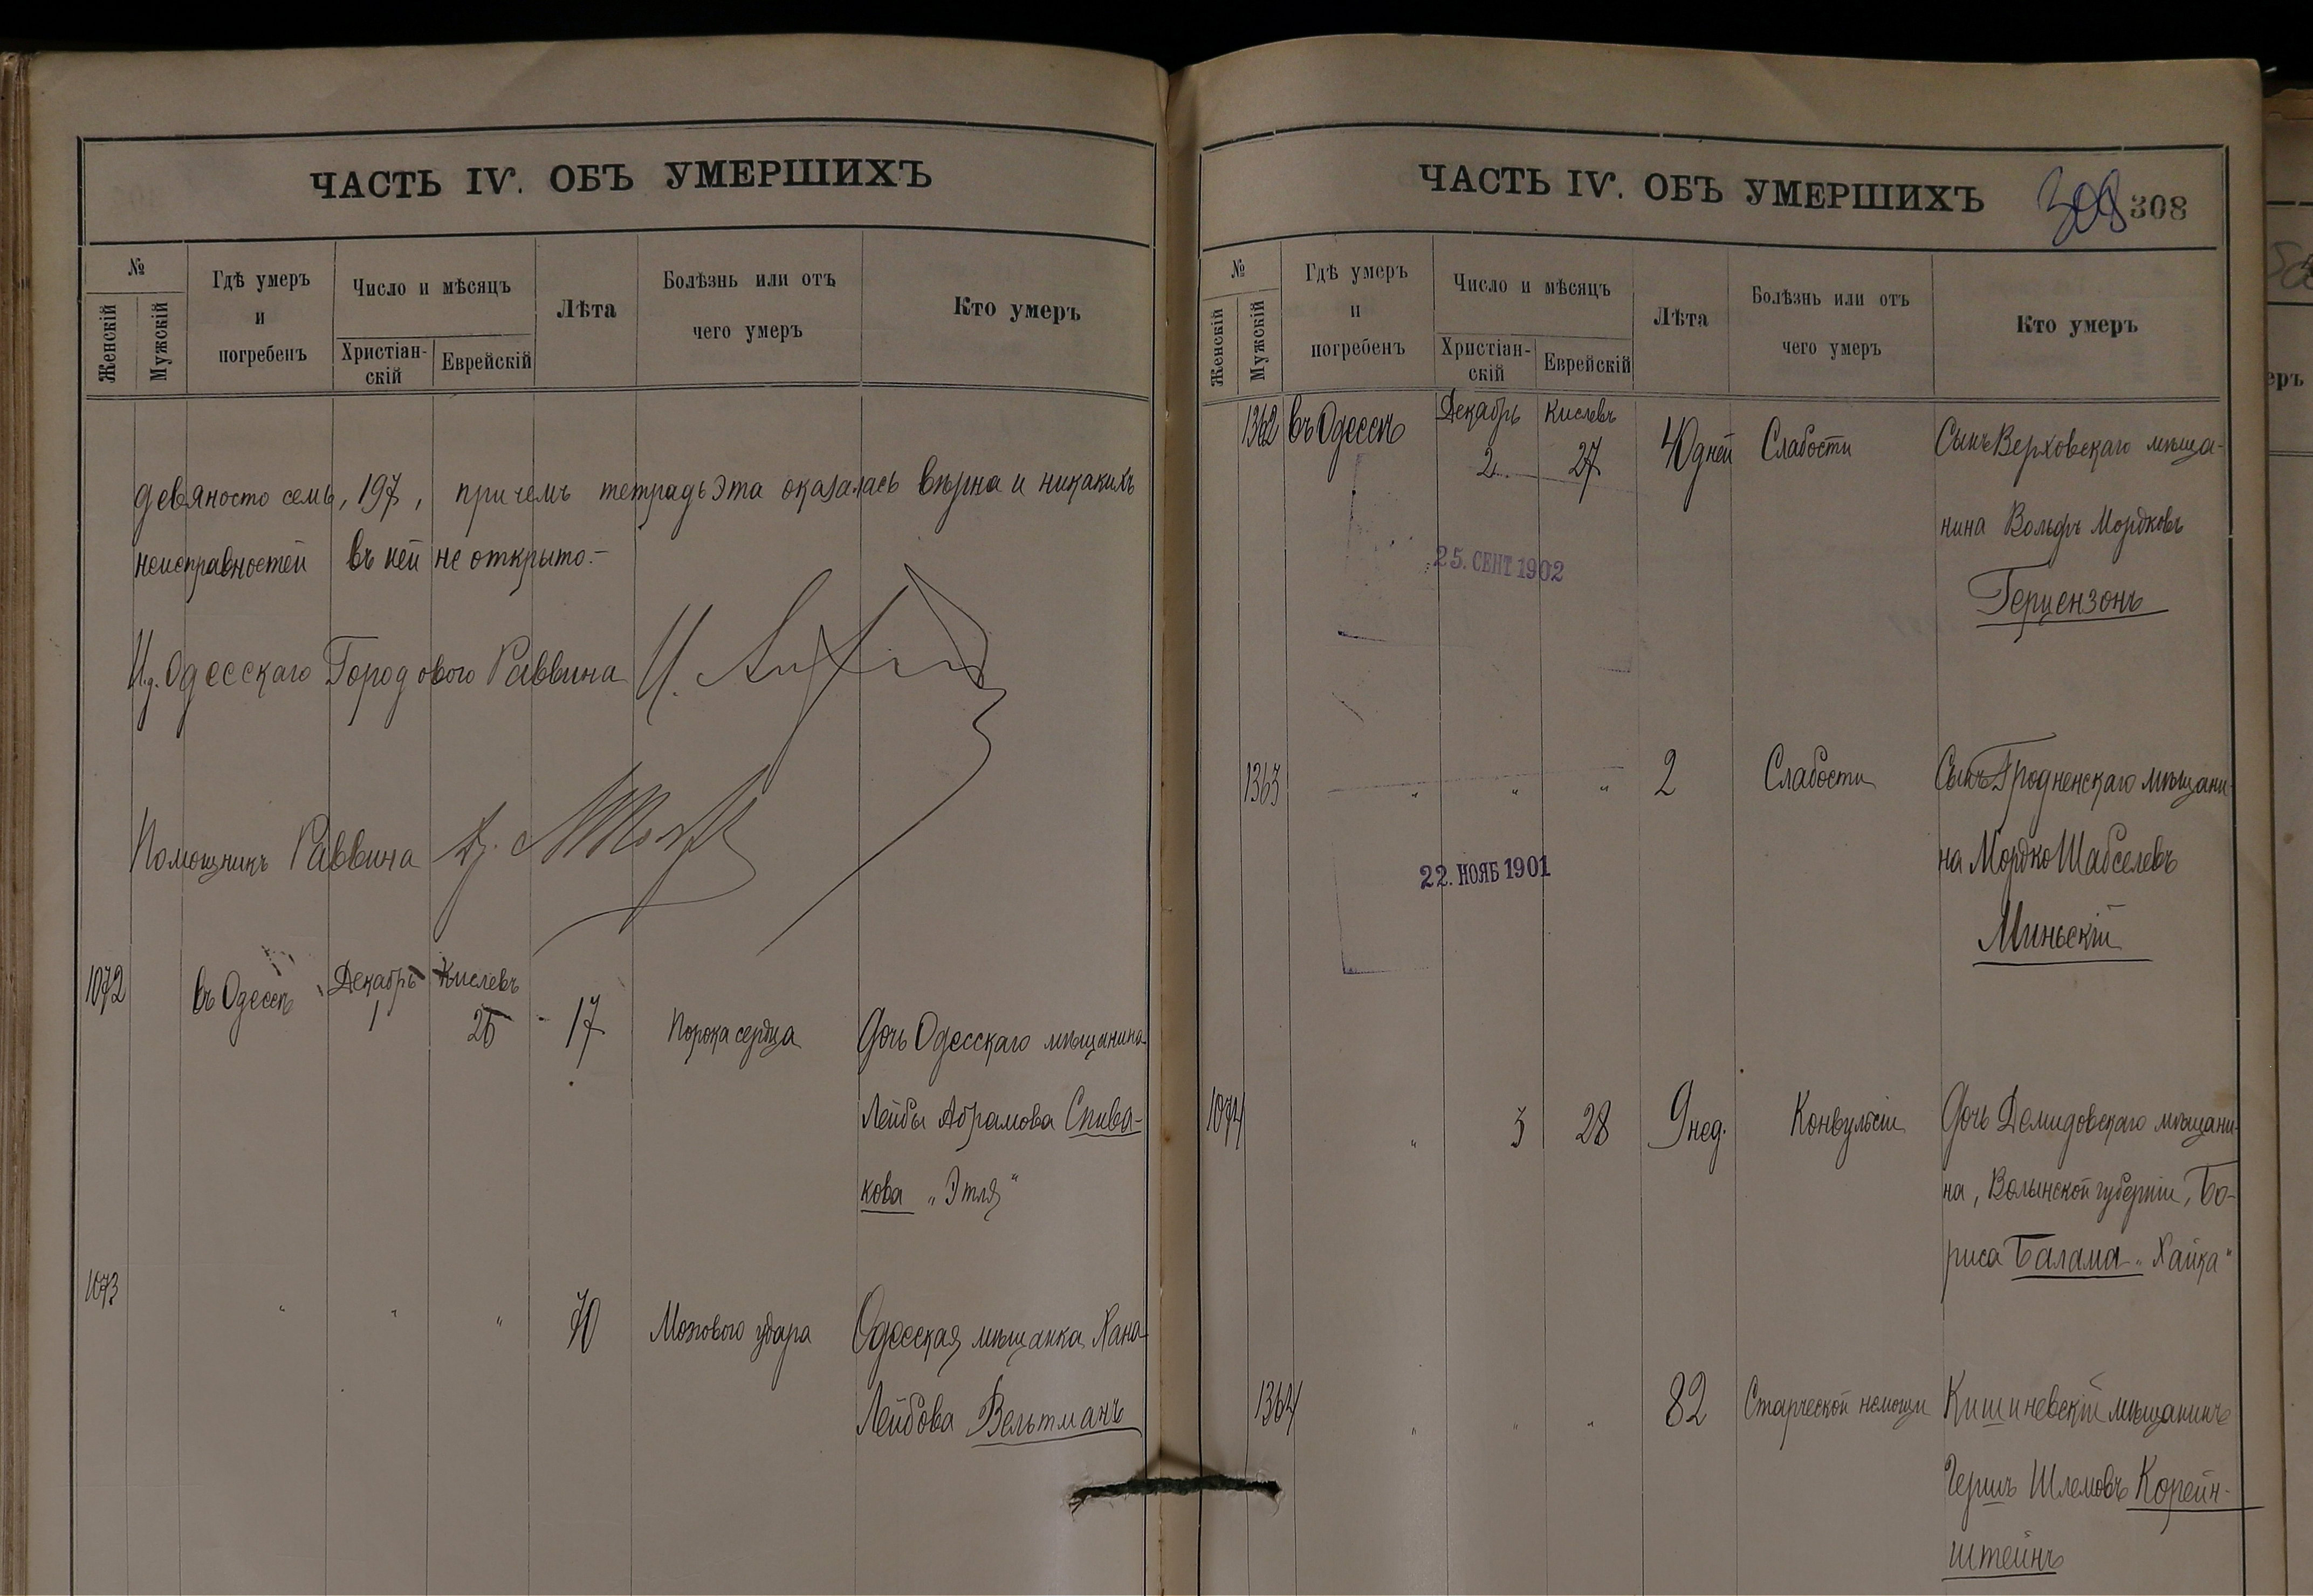 ЧАСТЬ IV. ОБЪ УМЕРШИХЪ
№
Женскій
Мужскій
Гдѣ умеръ
и
погребенъ
Число и мѣсяцъ
Христіан-
скій
Еврейскій
Лѣта
Болѣзнь или отъ
чего умеръ
Кто умеръ
девяносто семь, 197, при чемъ тетрадь эта оказалась вѣрна и никакихъ
неисправностей въ ней не открыто.-
И.д. Одесскаго Городового Раввина
Помощникъ Раввина
1072 въ Одессѣ Декабрь 1 Кислевъ 17 Порока сердца Дочь Одесскаго мѣщанина
Лейбы Абрамова Спива-
кова „Этля“
1073 " " " 70 Мозгового удара Одесская мѣщанка Хана
Лейбова Вельтманъ
ЧАСТЬ IV. ОБЪ УМЕРШИХЪ 308 308
№
Женскій
Мужскій
Гдѣ умеръ
и
погребенъ
Число и мѣсяцъ
Христіан-
скій
Еврейскій
Лѣта
Болѣзнь или отъ
чего умеръ
Кто умеръ
1362 въ Одессѣ Декабрь 2 Кислевъ 27 40 дней Слабости Сынъ Верховскаго мѣща-
нина Вольфъ Мордковъ
Герцензонъ
25. СЕНТ 1902
1363 " " " 2 Слабости Сынъ Гродненскаго мѣщани-
на Мордко Шабселевъ
Миньскій
22. НОЯБ 1901
1074 " 3 28 9 нед. Конвульсіи Дочь Демидовскаго мѣщани-
на, Волынской губерніи, Бо-
риса Балама „Хайка“
1364 " " " 82 Старческой немощи Кишиневскій мѣщанинъ
Гершъ Шлемовъ Корейн-
штейнъ